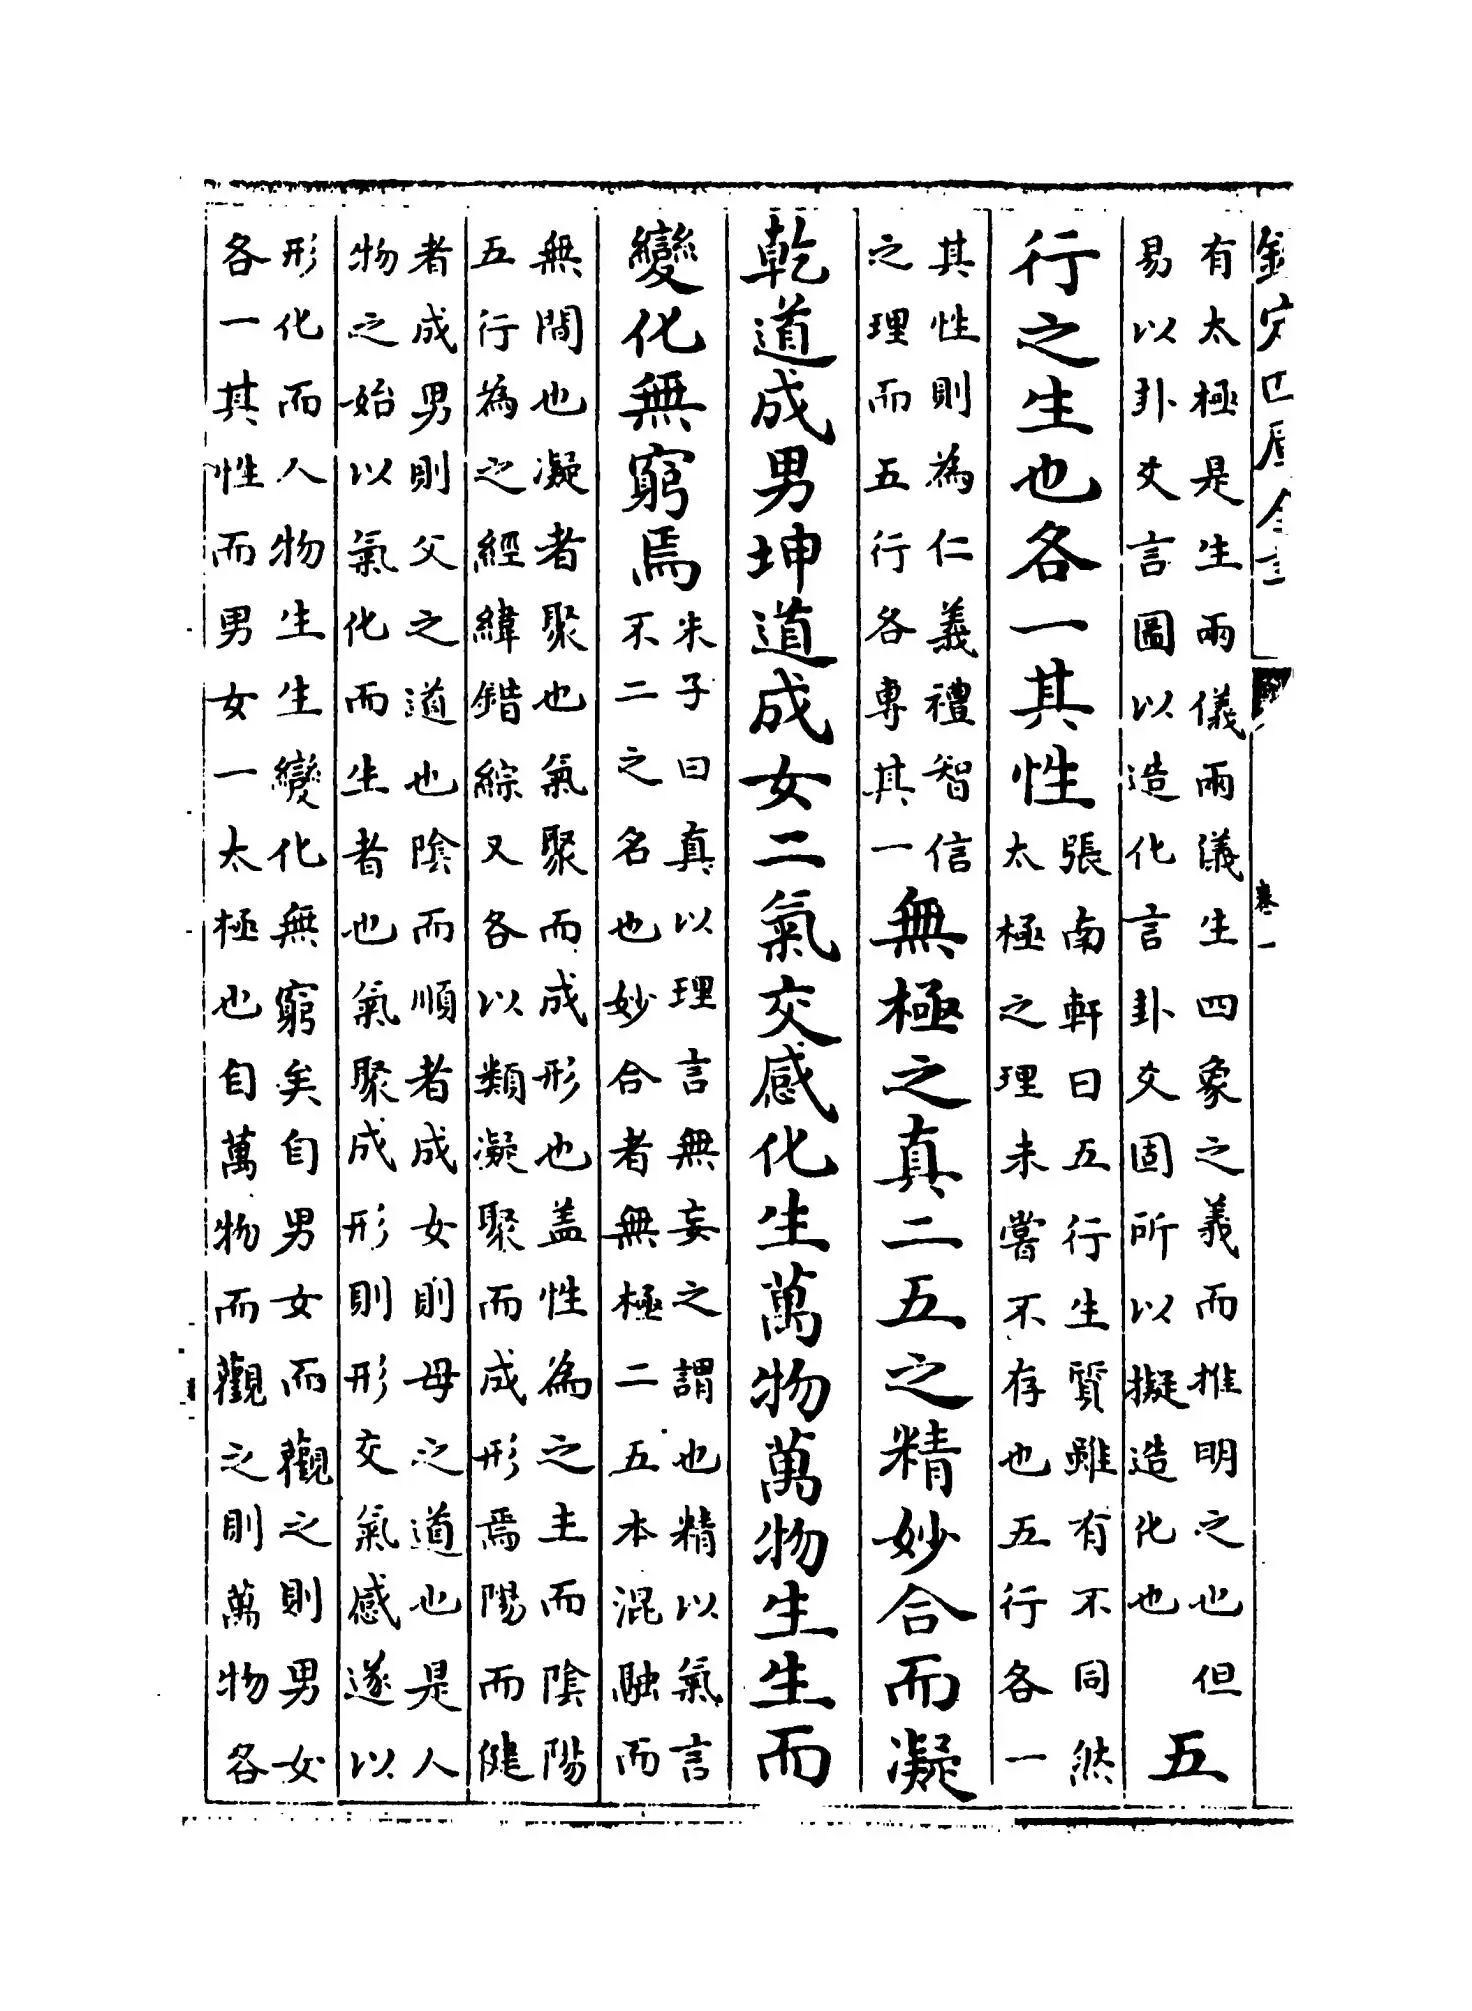 欽定四庫全書
卷一
有太極是生兩儀兩儀生四象之義而推明之也但
易以卦爻言圖以造化言卦爻固所以擬造化也
五
行之生也各一其性
張南軒曰五行生質雖有不同然
太極之理未嘗不存也五行各一
其性則為仁義禮智信
之理而五行各專其一
無極之真二五之精妙合而凝
乾道成男坤道成女二氣交感化生萬物萬物生生而
變化無窮焉
朱子曰真以理言無妄之謂也精以氣言
不二之名也妙合者無極二五本混融而
無間也凝者聚也氣聚而成形也盖性為之主而陰陽
五行為之經緯錯綜又各以類凝聚而成形焉陽而健
者成男則父之道也陰而順者成女則母之道也是人
物之始以氣化而生者也氣聚成形則形交氣感遂以
形化而人物生生變化無窮矣自男女而觀之則男女
各一其性而男女一太極也自萬物而觀之則萬物各